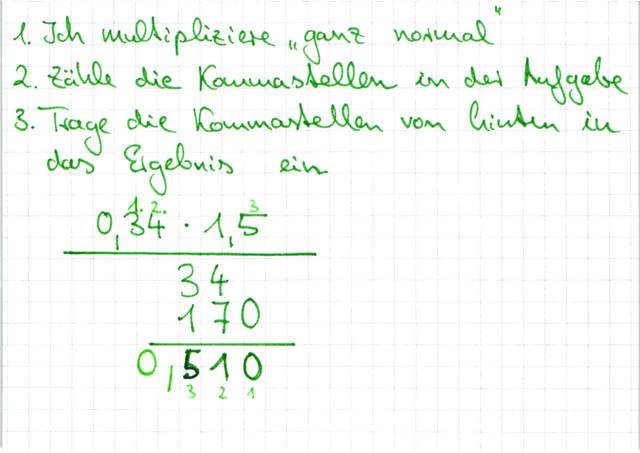 1. Ich multipliziere „ganz normal“
2. Zähle die Kommastellen in der Aufgabe
3. Trage die Kommastellen von hinten in
das Ergebnis ein
1. 2. 3
0,34 · 1,5
34
170
0,510
3 2 1